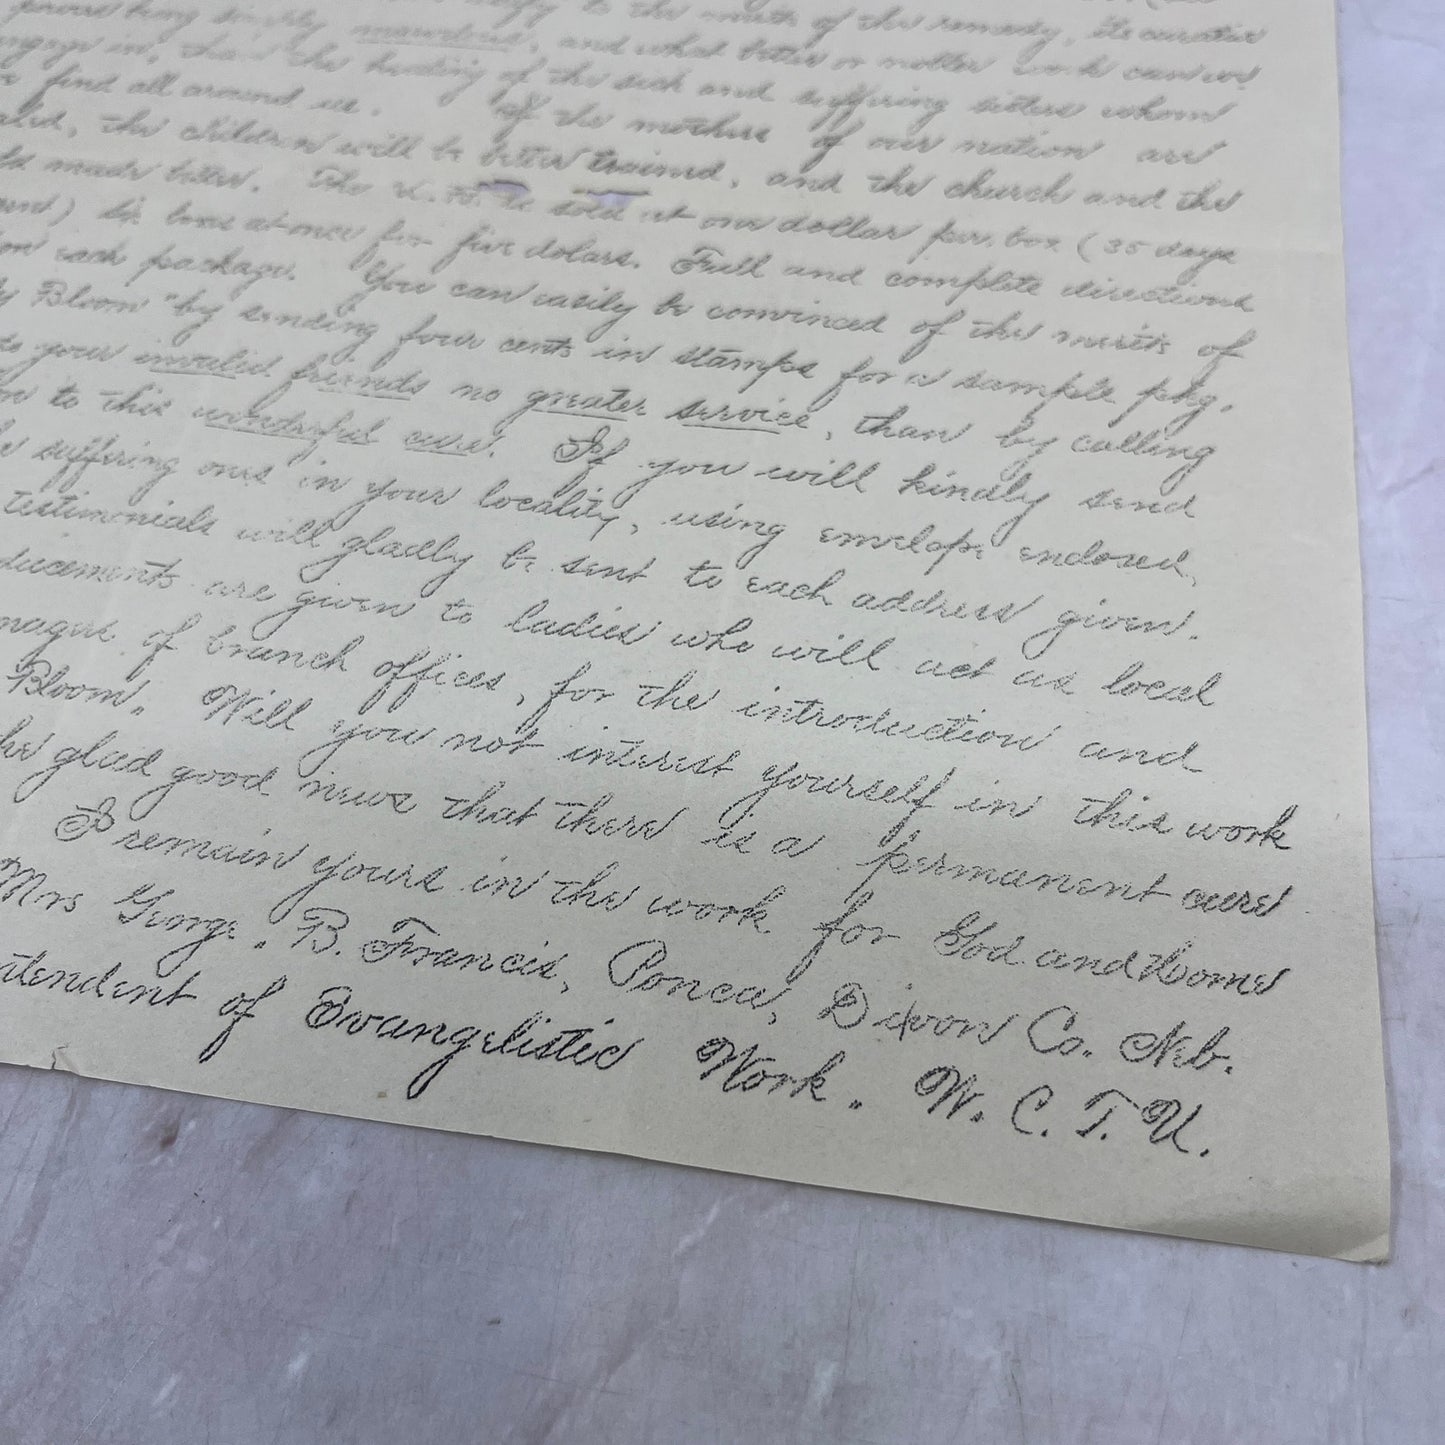 to the merits of the remedy, its curative
powers being simply marvelous, and what better or nobler work can we
engage in, than the healing of the sick and suffering sisters whom
find all around us. If the mothers of our nation are
the children will be better trained, and the church and the
made better. The L. B. is sold at one dollar per. box (35 days
six boxes at once for five dolars. Full and complete directions
on each package. You can easily be convinced of the merits of
Bloom" by sending four cents in stamps for a sample pkg.
your invalid friends no greater service, than by calling
to this wonderful cure. If you will kindly send
suffering ones in your locality, using envelope enclosed,
testimonials will gladly be sent to each address given.
are given to ladies who will act as local
of branch offices, for the introduction and
Bloom. Will you not interest yourself in this work
glad good news that there is a permanent cure
I remain yours in the work for God and Home
Mrs George. B. Francis, Ponca, Dixon Co. Neb.
of Evangelistic Work. W. C. T. U.